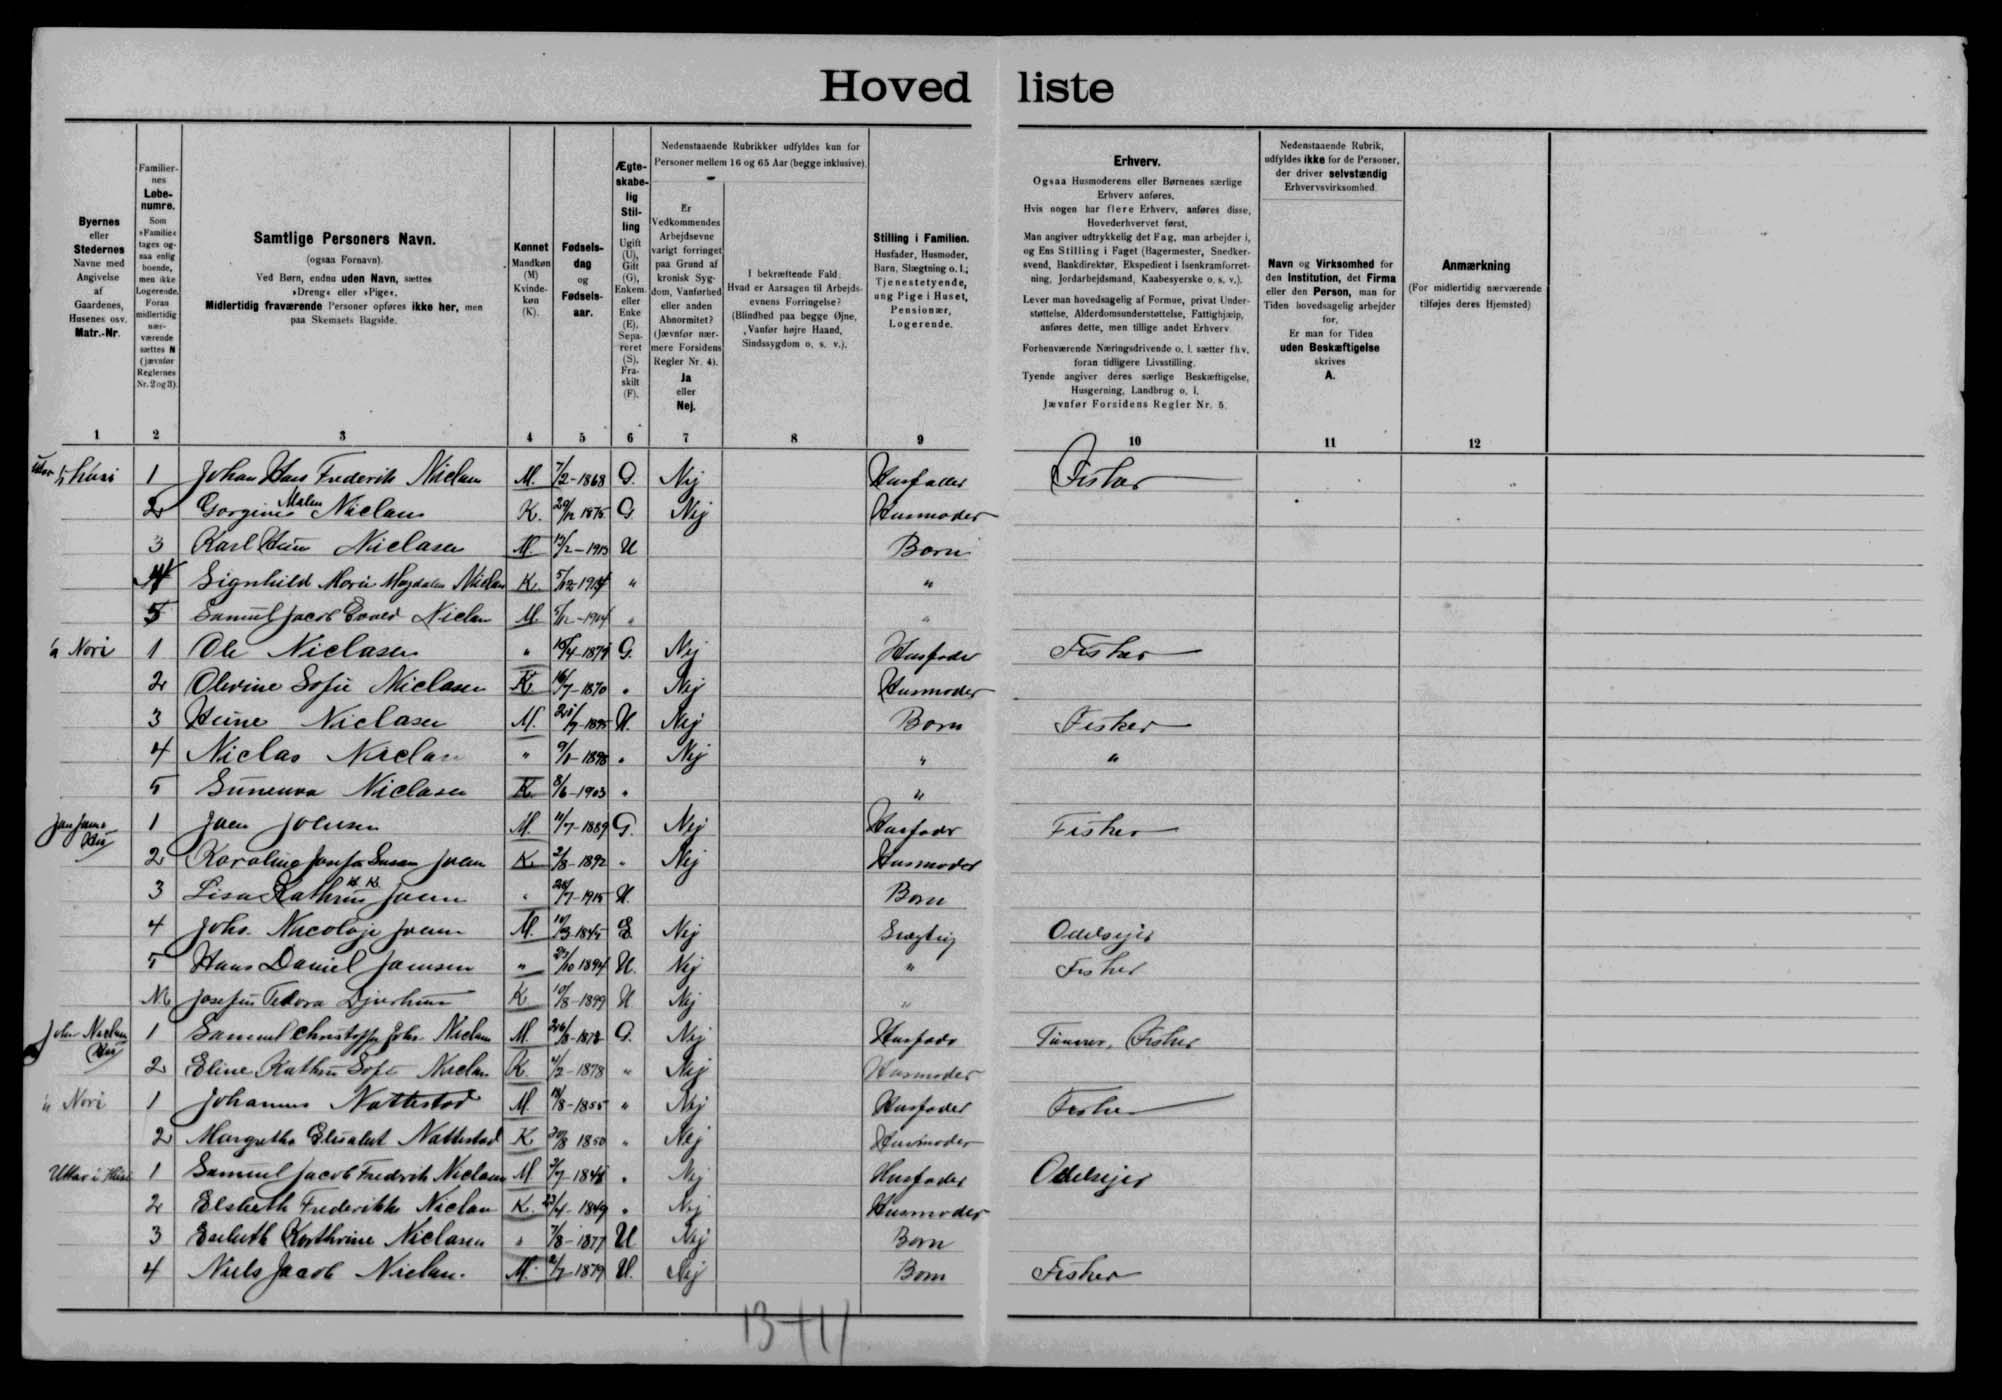 Hoved liste
Byernes
eller
Stedernes
Navne med
Angivelse
af
Gaardenes,
Husenes osv.
Matr.-Nr.
Familier-
nes
Løbe-
numre.
Som
»Familie«
tages og-
saa enlig
boende,
men ikke
Logerende.
Foran
midlertidig
nær-
værende
sættes N
(jævnfør
Reglernes
Nr. 2 og 3).
Samtlige Personers Navn.
(ogsaa Fornavn).
Ved Børn, endnu uden Navn, sættes
»Dreng« eller »Pige«.
Midlertidig fraværende Personer opføres ikke her, men
paa Skemaets Bagside.
Kønnet
Mandkøn
(M)
Kvinde-
køn
(K).
Fødsels-
dag
og
Fødsels-
aar.
Ægte-
skabe-
lig
Stil-
ling
Ugift
(U),
Gift
(G),
Enkem.
eller
Enke
(E),
Sepa-
reret
(S),
Fra-
skilt
(F).
Nedenstaaende Rubrikker udfyldes kun for
Personer mellem 16 og 65 Aar (begge inklusive).
Er
Vedkommendes
Arbejdsevne
varigt forringet
paa Grund af
kronisk Syg-
dom, Vanførhed
eller anden
Abnormitet?
(Jævnfør nær-
mere Forsidens
Regler Nr. 4).
Ja
eller
Nej.
I bekræftende Fald:
Hvad er Aarsagen til Arbejds-
evnens Forringelse?
(Blindhed paa begge Øjne,
Vanfør højre Haand,
Sindssygdom o. s. v.).
Stilling i Familien.
Husfader, Husmoder,
Barn, Slægtning o. l.;
Tjenestetyende,
ung Pige i Huset,
Pensionær,
Logerende.
Erhverv.
Ogsaa Husmoderens eller Børnenes særlige
Erhverv anføres.
Hvis nogen har flere Erhverv, anføres disse,
Hovederhvervet først.
Man angiver udtrykkelig det Fag, man arbejder i,
og Ens Stilling i Faget (Bagermester, Snedker-
svend, Bankdirektør, Ekspedient i Isenkramforret-
ning, Jordarbejdsmand, Kaabesyerske o. s. v.).
Lever man hovedsagelig af Formue, privat Under-
støttelse, Alderdomsunderstøttelse, Fattighjælp,
anføres dette, men tillige andet Erhverv.
Forhenværende Næringsdrivende o. l. sætter fhv.
foran tidligere Livsstilling.
Tyende angiver deres særlige Beskæftigelse,
Husgerning, Landbrug o. l.
Jævnfør Forsidens Regler Nr. 5.
Nedenstaaende Rubrik,
udfyldes ikke for de Personer,
der driver selvstændig
Erhvervsvirksomhed.
Navn og Virksomhed for
den Institution, det Firma
eller den Person, man for
Tiden hovedsagelig arbejder
for.
Er man for Tiden
uden Beskæftigelse
skrives
A.
Anmærkning
(For midlertidig nærværende
tilføjes deres Hjemsted)
1 2 3 4 5 6 7 8 9 10 11 12
1 Johan Hans Frederik Niclasen M. 7/2-1868 G. Nej Husfader Fisker
2 Malen Niclasen K. 1875 G. Nej Husmoder
3 Karl Niclasen M. U Barn
4 Signhild Marie Magdalen Niclasen K. "
5 Samuel Jacob Niclasen M. "
Nori 1 Ole Niclasen " G. Nej Husfader Fisker
2 Olevine Sofie Niclasen K. 16/7-1870 " Nej Husmoder
3 Heine Niclasen M. U. Nej Barn Fisker
4 Niclas Niclasen " 1898 " Nej " "
5 Sunneva Niclasen K. 8/6-1903 " "
1 Joen Joensen M. 11/7-1889 G. Nej Husfader Fisker
2 Karoline Susan Joensen K 2/8-1892 " Nej Husmoder
3 Lisa Kathrine Joensen " U. Barn
4 Johs. Nicolaje Joensen M. E. Nej Odelsejer
5 Hans Daniel " U. Nej " Fisker
Tedora K 10/8-1899 U Nej "
1 Samuel Christoffer Johs. Niclasen M. G. Nej Husfader Fisker
2 Eline Kathrine Sofie Niclasen K. 1878 " Nej Husmoder
Nori 1 Johannes Nattestad M. " Nej Husfader Fisker
2 Margretha Elisabet Nattestad K. 1850 " Nej Husmoder
1 Samuel Jacob Fredrik Niclasen M " Nej Husfader Odelsejer
2 Elsbeth Frederikke Niclasen K. 23/4-1849 " Nej Husmoder
3 Niclasen " 7/8-1877 U Nej Barn
4 Niels Jacob Niclasen. M. 1879 U. Nej Barn Fisker
13+11